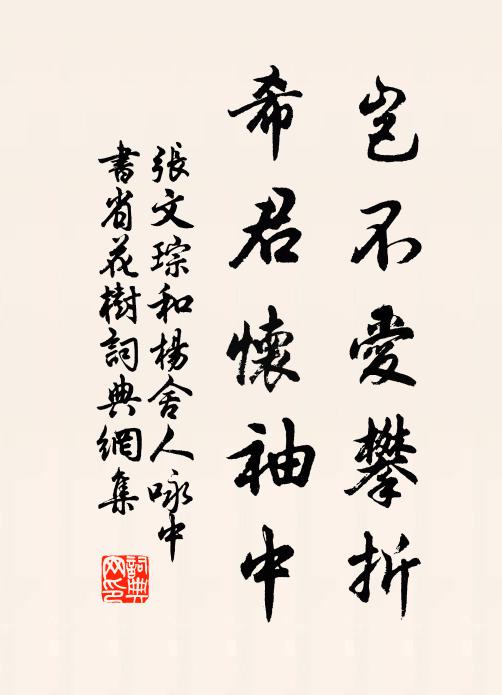 豈不愛攀折
希君懷袖中
張文琮和楊舍人咏中
書省花樹詞典網集
詞典
网印